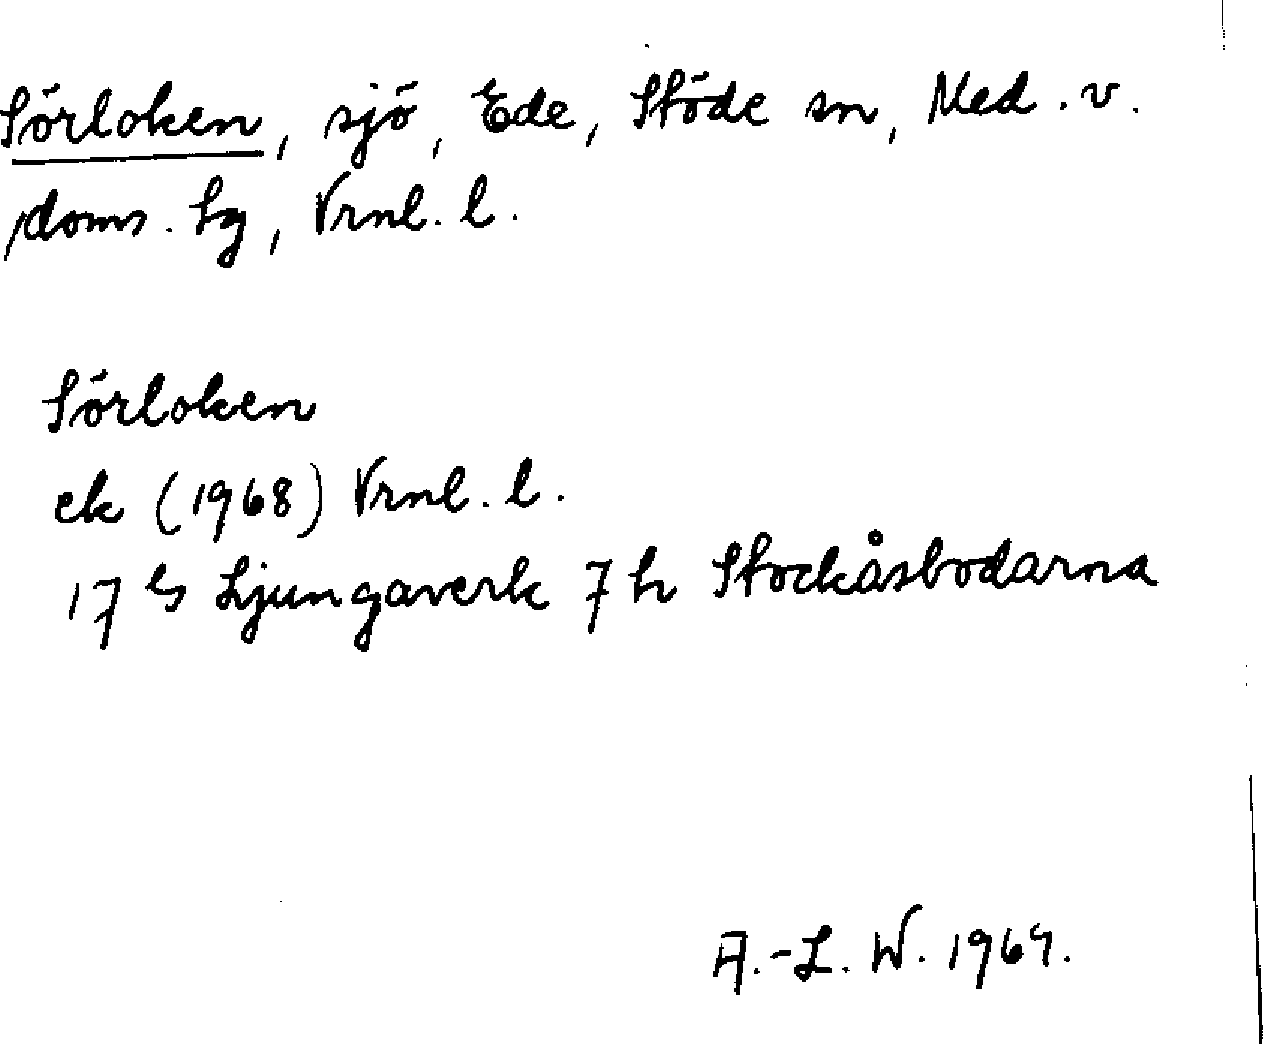 Sörloken, sjö, Ede, Stöde sn, Med. v.
doms. sg, Vrnl. l.
Sörloken
ek (1968) Vrnl. l.
17 G Ljungaverk 7 h Stockåsbodarna
A.-L. W. 1969.